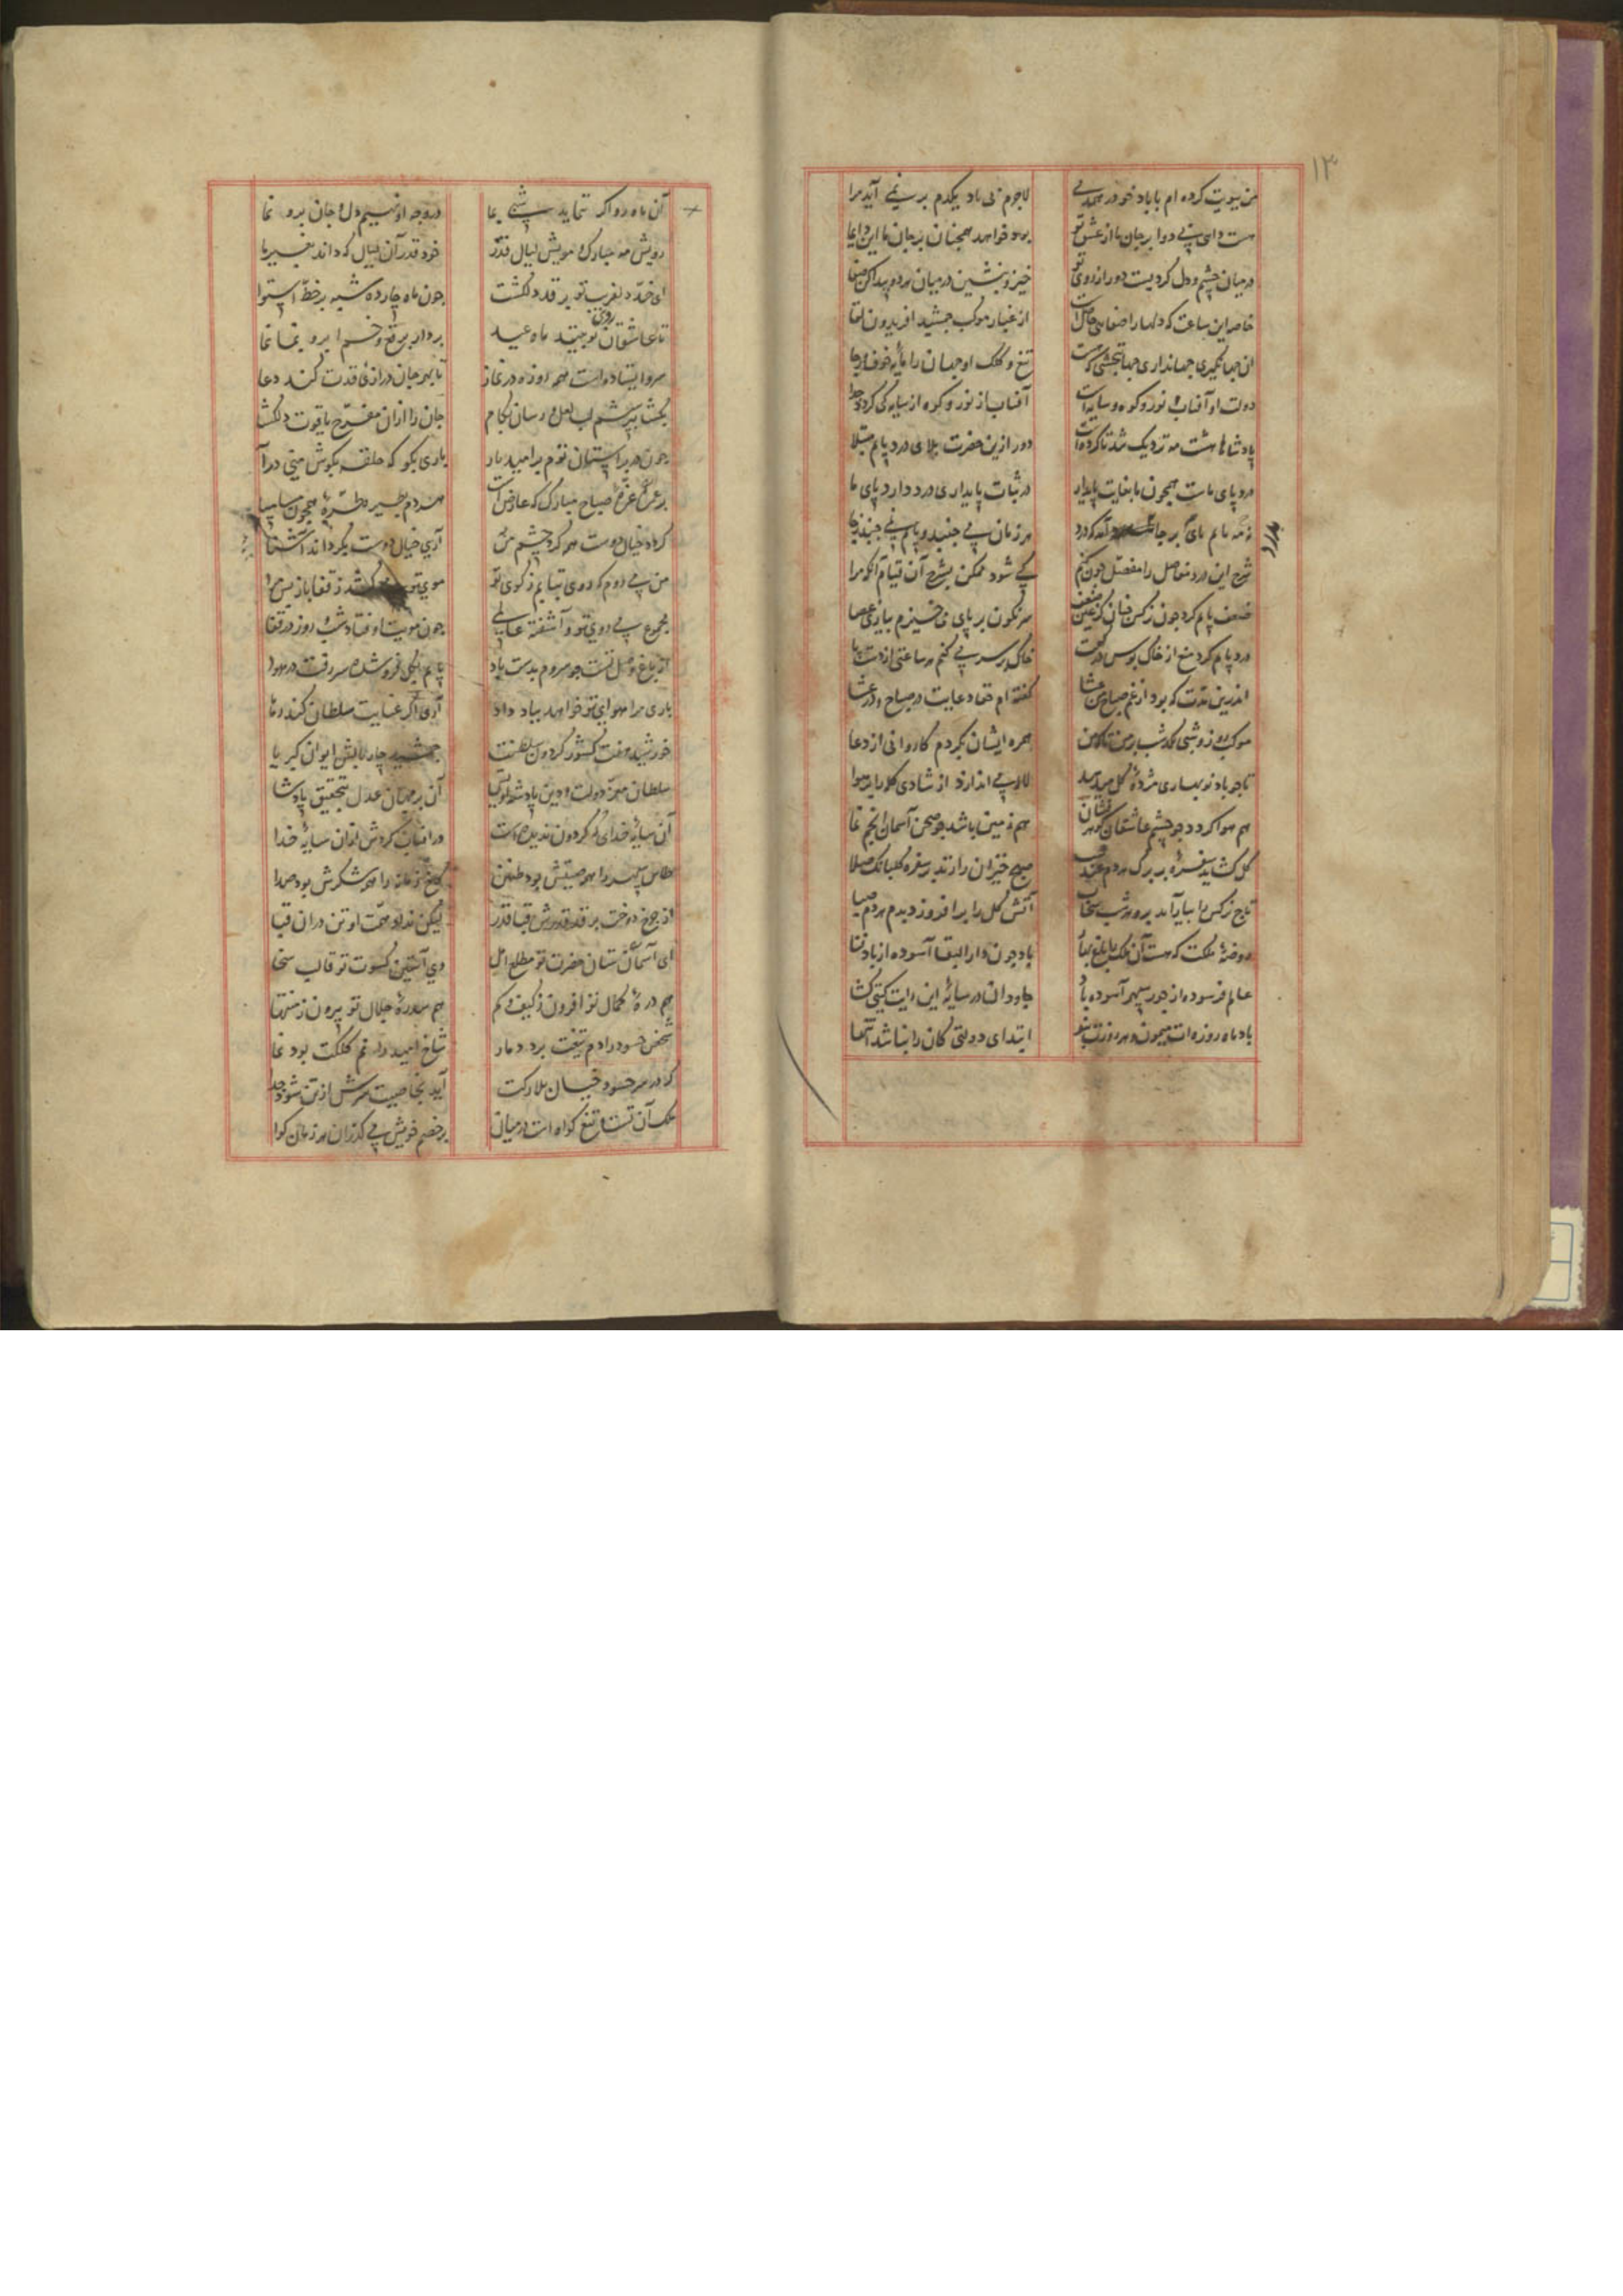 ۱۳
من بیویت کرده ام با باد خو در همدمی لاجرم بی باد یکدم بر نمی آید مرا
هست دای بی دوا بر جان ما از عشق تو بود خواهد همچنان بر جان ما این دایما
در میان چشم و دل کردیست دور از روی تو خیز و بنشین در میان هر دو پیدا کن صفا
خاصه این ساعت که دلها را صفایی حاصل است از غبار موکب جمشید افریدون لقا
آن جهانگیری جهانداری جهانبخشی که هست تیغ و کلک او جهان را مایه خوف و رجا
دولت او آفتاب و نور و کوه و سایه است آفتاب از نور و کوه از سایه کی کردد جدا
پادشاها هشت مه نزدیک شد تا کرده است دور ازین حضرت بلای درد پایم مبتلا
درد پای ماست همچون ما بغایت پایدار در ثبات پایداری درد دارد پای ما
زمه مایم پای بر جا که درد هر زمان می جنبد و پایم نمی جنبد ز جا
شرح این درد مفاصل را مفصل چون کنم کی شود ممکن بشرح آن قیام آنکو مرا
ضعف پایم کرد چون نرکس چنان کز عین ضعف سرنکون بر پای می خیزم بیاری عصا
درد پایم کرد منع از خاک بوس درکهت خاک بر سر می کنم هر ساعتی از دست پا
اندرین مدت که بود از غم صباح من عشا کفته ام حقا دعایت در صباح و در عشا
موکب روز و شبی نکذشت بر من تا که من همره ایشان نکردم کاروانی از دعا
تا چو باد نوبهاری مژده کل میدهد لاله می اندازد از شادی کله را در هوا
هم هوا کردد چو چشم عاشقان کوهر فشان هم زمین باشد چو صحن آسمان انجم نما
کل کشاید سفره پر برک هر دم عندلیب صبح خیزان را زند بر سفره کلبانک صلا
تاج نرکس را بیاراید بزر هر شب سحاب آتش کل را برافروزد دمیدم هر دم صبا
روضه ملکت که هست آن ملک را باغ بها باد چون دار البقا آسوده از باد فنا
عالم فرسوده از جور سپهر آسوده باد جاودان در سایه این رایت کیتی کشا
باد ماه روزه ات میمون و هر روزت بنو ابتدای دولتی کان را نباشد انتها
آن ماه رو اکر بنماید شبی بما در وجه او نهیم دل و جان برو نما
رویش مه مبارک و مویش لیال قدر خود قدر آن لیال که داند بغیر ما
ای خد دلفریب تو بر قد دلکشت چون ماه چارده شبه بر خط استوا
تا عاشقان روی تو جنتد ماه عید بردار برقع و خم ابرو بما نما
سرو ایستاده است همه روزه در نماز تا بهر جان درازی قدت کند دعا
بخشا بپرسشم لب لعل و رسان بکام جان را از آن مفرح یاقوت دلکشا
چون در بر آستان توم بر امید بار باری بکو که حلقه بکوش منی درآ
بر عکس غره صباح مبارک که عارض است هر دم بطیره طره همچون مسا بسا
کرد خیال دوست همه کرد چشم من آری خیال دوست بکرداند آشنا
من می روم که روی بتابم ز کوی تو موی تو می کشد ز قفا باز پس مرا
مجموع بی روی تو و آشفته عالمی چون مویت اوفتاد شب و روز در قفا
از باغ وصل تست چو سروم بدست باد پایم بکل فرو شد و سر رفت در هوا
باری مرا هوای تو خواهد بباد داد آری اکر عنایت سلطان کند رها
خورشید هفت کشور کردون سلطنت جمشید چار بالش ایوان کبریا
سلطان معز دولت و دین پادشه اویس آن بر جهان عدل بتحقیق پادشا
آن سایه خدای که کردون ندیده است در آفتاب کردش ازان سایه خدا
طاس سپهر را بود صیتش بود طنین کوش زمانه را همه شکرش بود صدا
از چرخ دوخت بر قد قدرش قبا قدر لیکن نداد همت او تن دران قبا
ای آسمان ستان حضرت تو مطلع امل وی آستین کسوت تو قالب سخا
هم ذره کمال تو افزون ز کیف و کم هم سدره جلال تو بیرون ز منتها
شخص حسود را دم تیغت برد دمار شاخ امید را نم کلکت بود نما
کر در سر حسود خیال بلارکت آید بخاصیت سرش از تن شود جدا
ملک آن تست و تیغ کواه است در میان بر خصم خویش می کذران هر زمان کوا